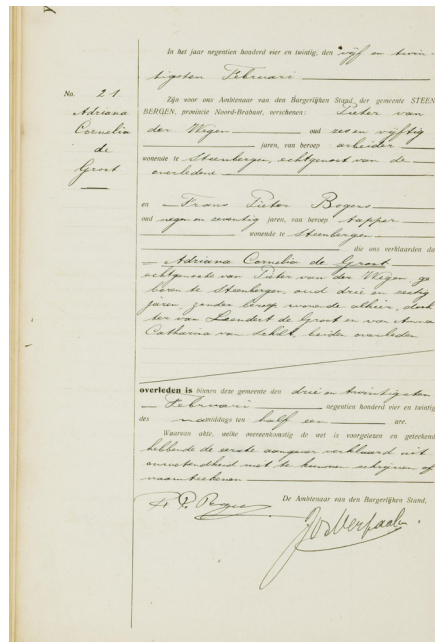 In het jaar negentien honderd vier en twintig, den vijf en twin-
tigsten Februari
No. 21
Adriana
Cornelia
de
Groot
Zijn voor ons Ambtenaar van den Burgerlijken Stand der gemeente STEEN
BERGEN, provincie Noord-Brabant, verschenen: Pieter van
der Wegen oud zes en vijftig
jaren, van beroep arbeider
wonende te Steenbergen, echtgenoot van de
overledene
en Frans Pieter Bogers
oud negen en zeventig jaren, van beroep tapper
wonende te Steenbergen
die ons verklaarden da
Adriana Cornelia de Groot
echtgenoote van Pieter van der Wegen ge
boren te Steenbergen, oud drie en zestig
jaren, zonder beroep wonende alhier, doch
ter van Leendert de Groot en van Anna
Catharina van , beiden overleden
overleden is binnen deze gemeente den drie en twintigsten
Februari negentien honderd vier en twintig
des namiddags ten half een ure.
Waarvan akte, welke overeenkomstig de wet is voorgelezen en geteekend
hebbende de eerste aangever verklaard uit
onwetendheid niet te kunnen schrijven of
naamteekenen
De Ambtenaar van den Burgerlijken Stand,
F. P. Bogers